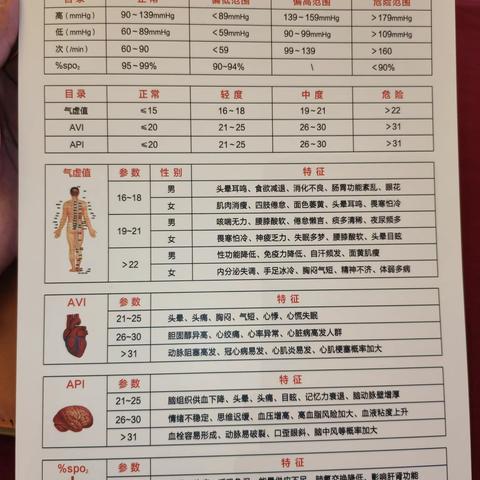 目录 正常 偏低范围 偏高范围 危险范围
高(mmHg) 90~139mmHg <89mmHg 139~159mmHg >179mmHg
低(mmHg) 60~89mmHg <59mmHg 90~99mmHg >109mmHg
次(/min) 60~90 <59 99~139 >160
%spo₂ 95~99% 90~94% \ <90%
目录 正常 轻度 中度 危险
气虚值 ≤15 16~18 19~21 >22
AVI ≤20 21~25 26~30 >31
API ≤20 21~25 26~30 >31
气虚值 参数 性别 特征
16~18 男 头晕耳鸣、食欲减退、消化不良、肠胃功能紊乱、眼花
女 肌肉消瘦、四肢倦怠、面色萎黄、头晕耳鸣、畏寒怕冷
19~21 男 咳喘无力、腰膝酸软、倦怠懒言、痰多清稀、夜尿频多
女 畏寒怕冷、神疲乏力、失眠多梦、腰膝酸软、头晕目眩
>22 男 性功能降低、免疫力降低、自汗频发、面黄肌瘦
女 内分泌失调、手足冰冷、胸闷气短、精神不济、体弱多病
AVI 参数 特征
21~25 头晕、头痛、胸闷、气短、心悸、心慌失眠
26~30 胆固醇异高、心绞痛、心率异常、心脏病高发人群
>31 动脉阻塞高发、冠心病易发、心肌炎易发、心肌梗塞概率加大
API 参数 特征
21~25 脑组织供血下降、头晕、头痛、目眩、记忆力衰退、脑动脉壁增厚
26~30 情绪不稳定、思维迟缓、血压增高、高血脂风险加大、血液粘度上升
>31 血栓容易形成、动脉易破裂、口歪眼斜、脑中风等概率加大
%spo₂ 参数 特征
能量供应不足、肺氧交换降低、影响肝肾功能